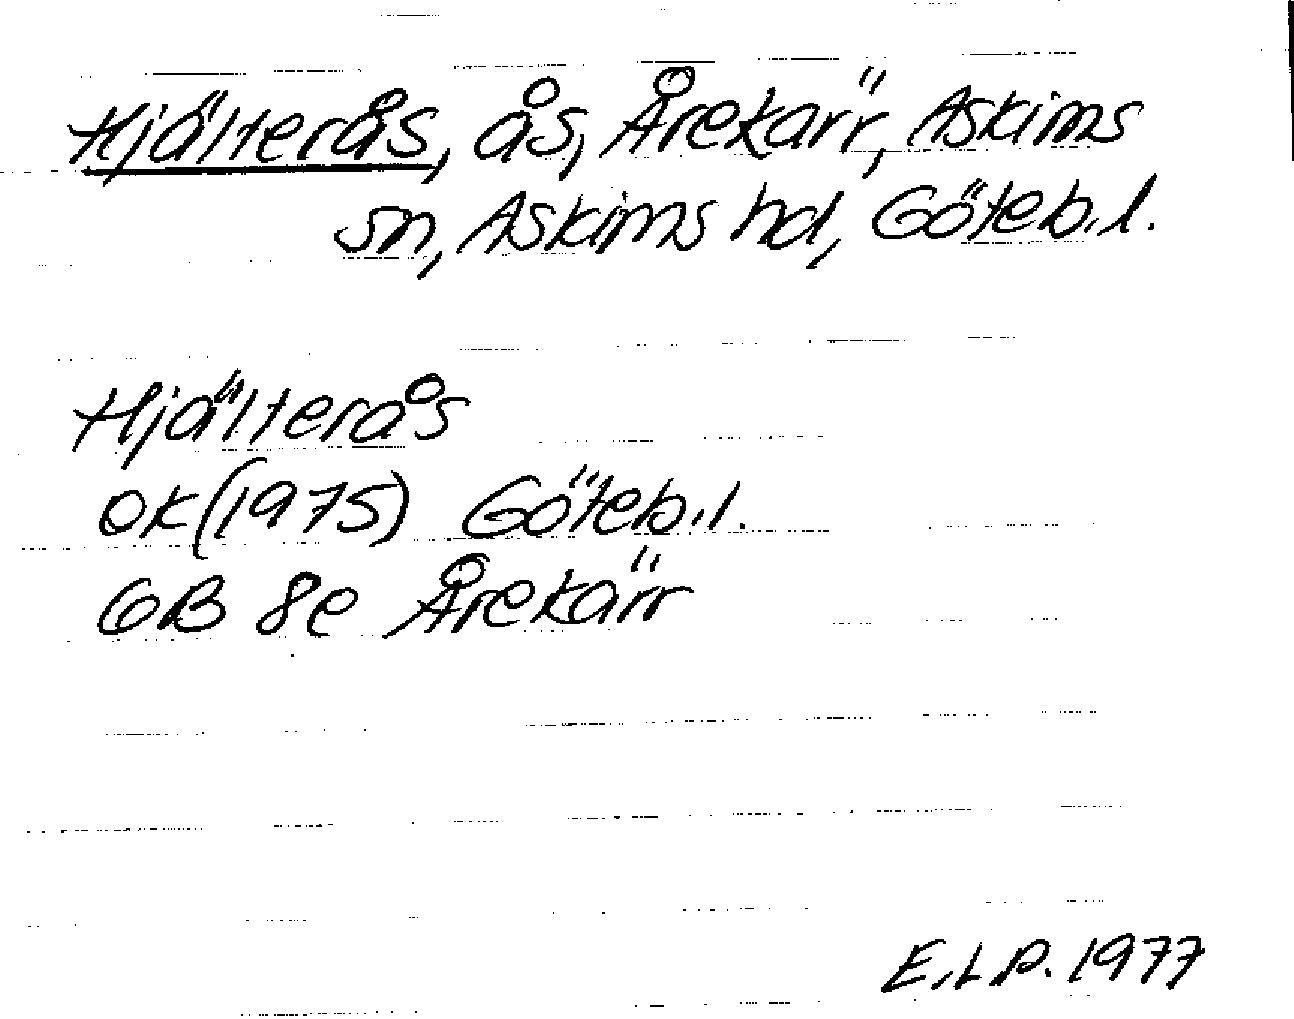 Hjälterås, ås, Årekärr, Askims
sn, Askims hd, Göteb.l.
Hjälterås
ek (1975) Göteb.l.
6B 8e Årekärr
E.L.P. 1977